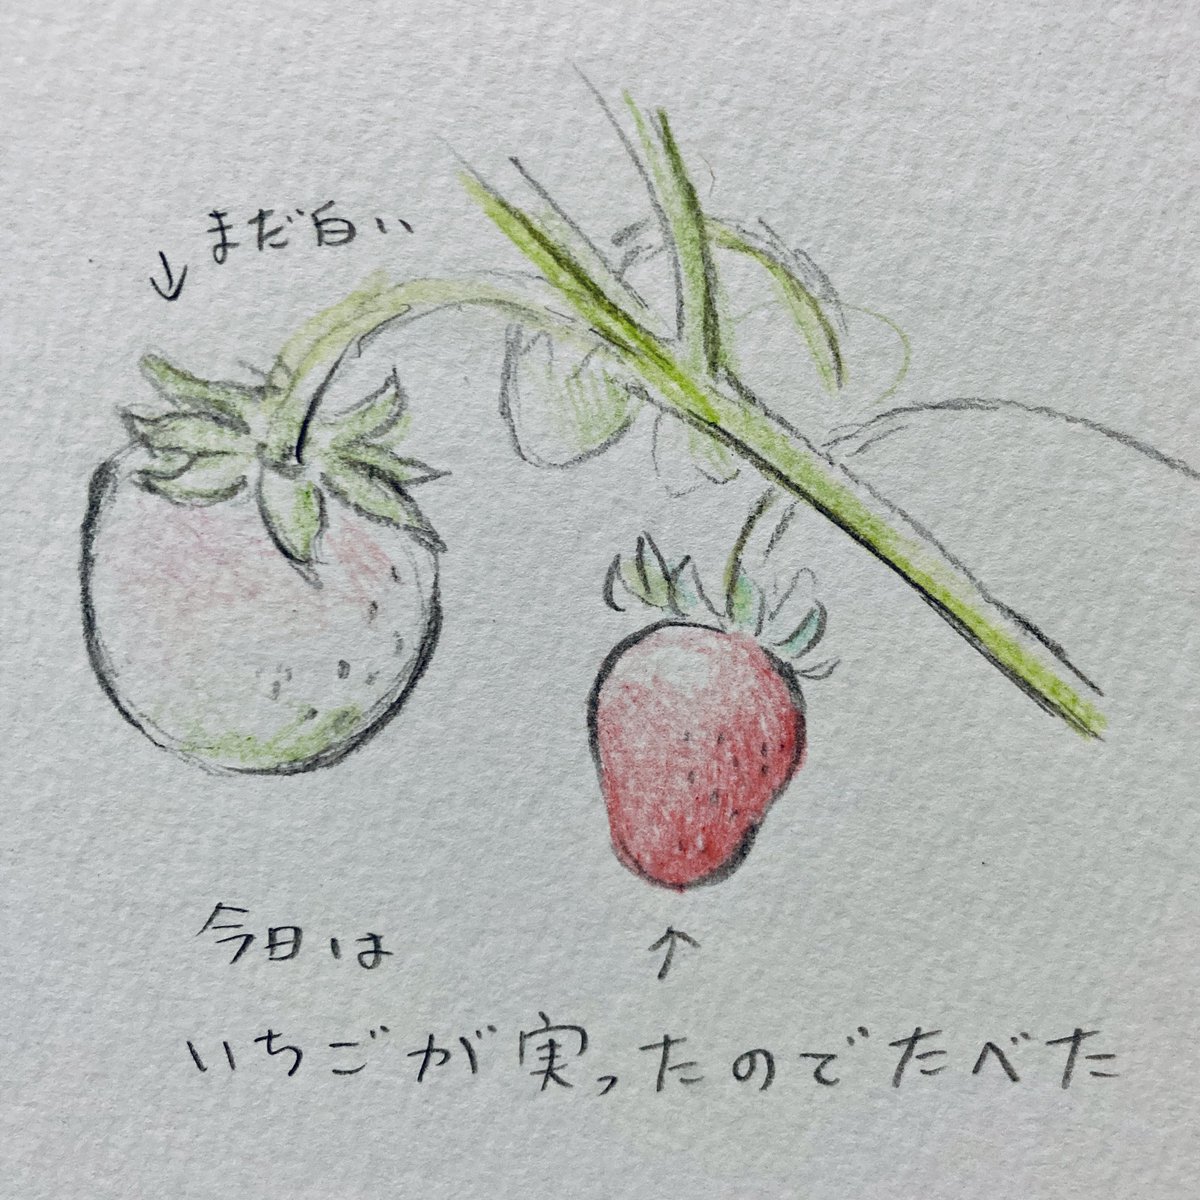 まだ白い
今日は
いちごが実ったのでたべた